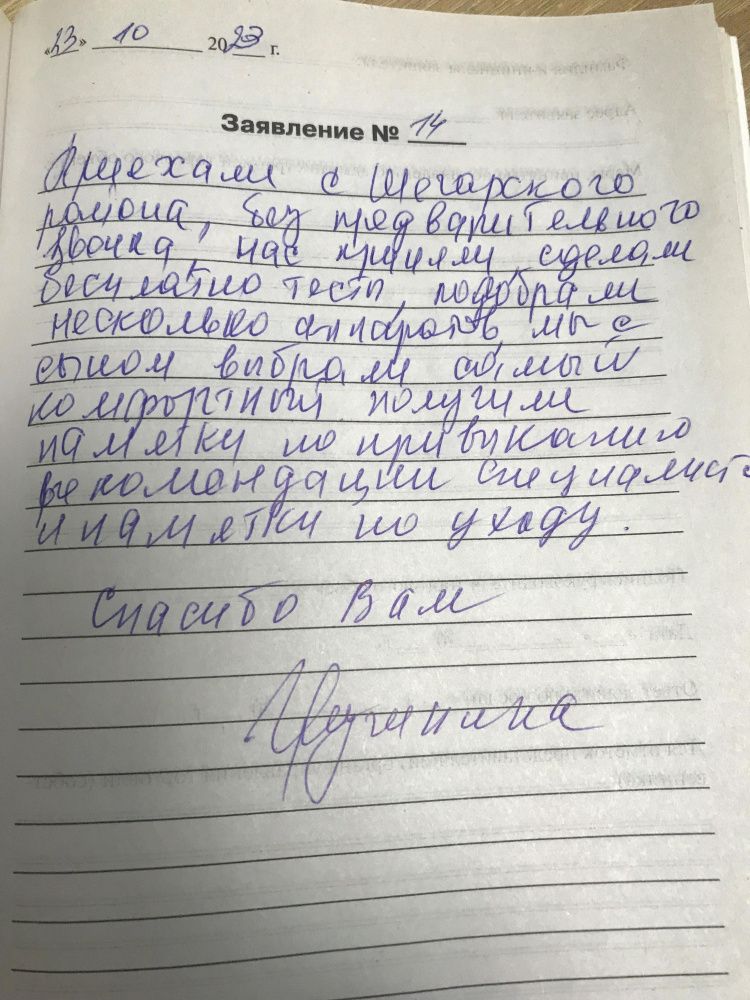 «23» 10 2023 г.
Заявление № 14
Приехали с Шегарского
района, без предварительного
звонка, нас приняли, сделали
бесплатно тесты, подобрали
несколько аппаратов, мы с
сыном выбрали самый
комфортный получили
памятку по привыканию
рекомендации специалиста
и памятки по уходу.
Спасибо Вам